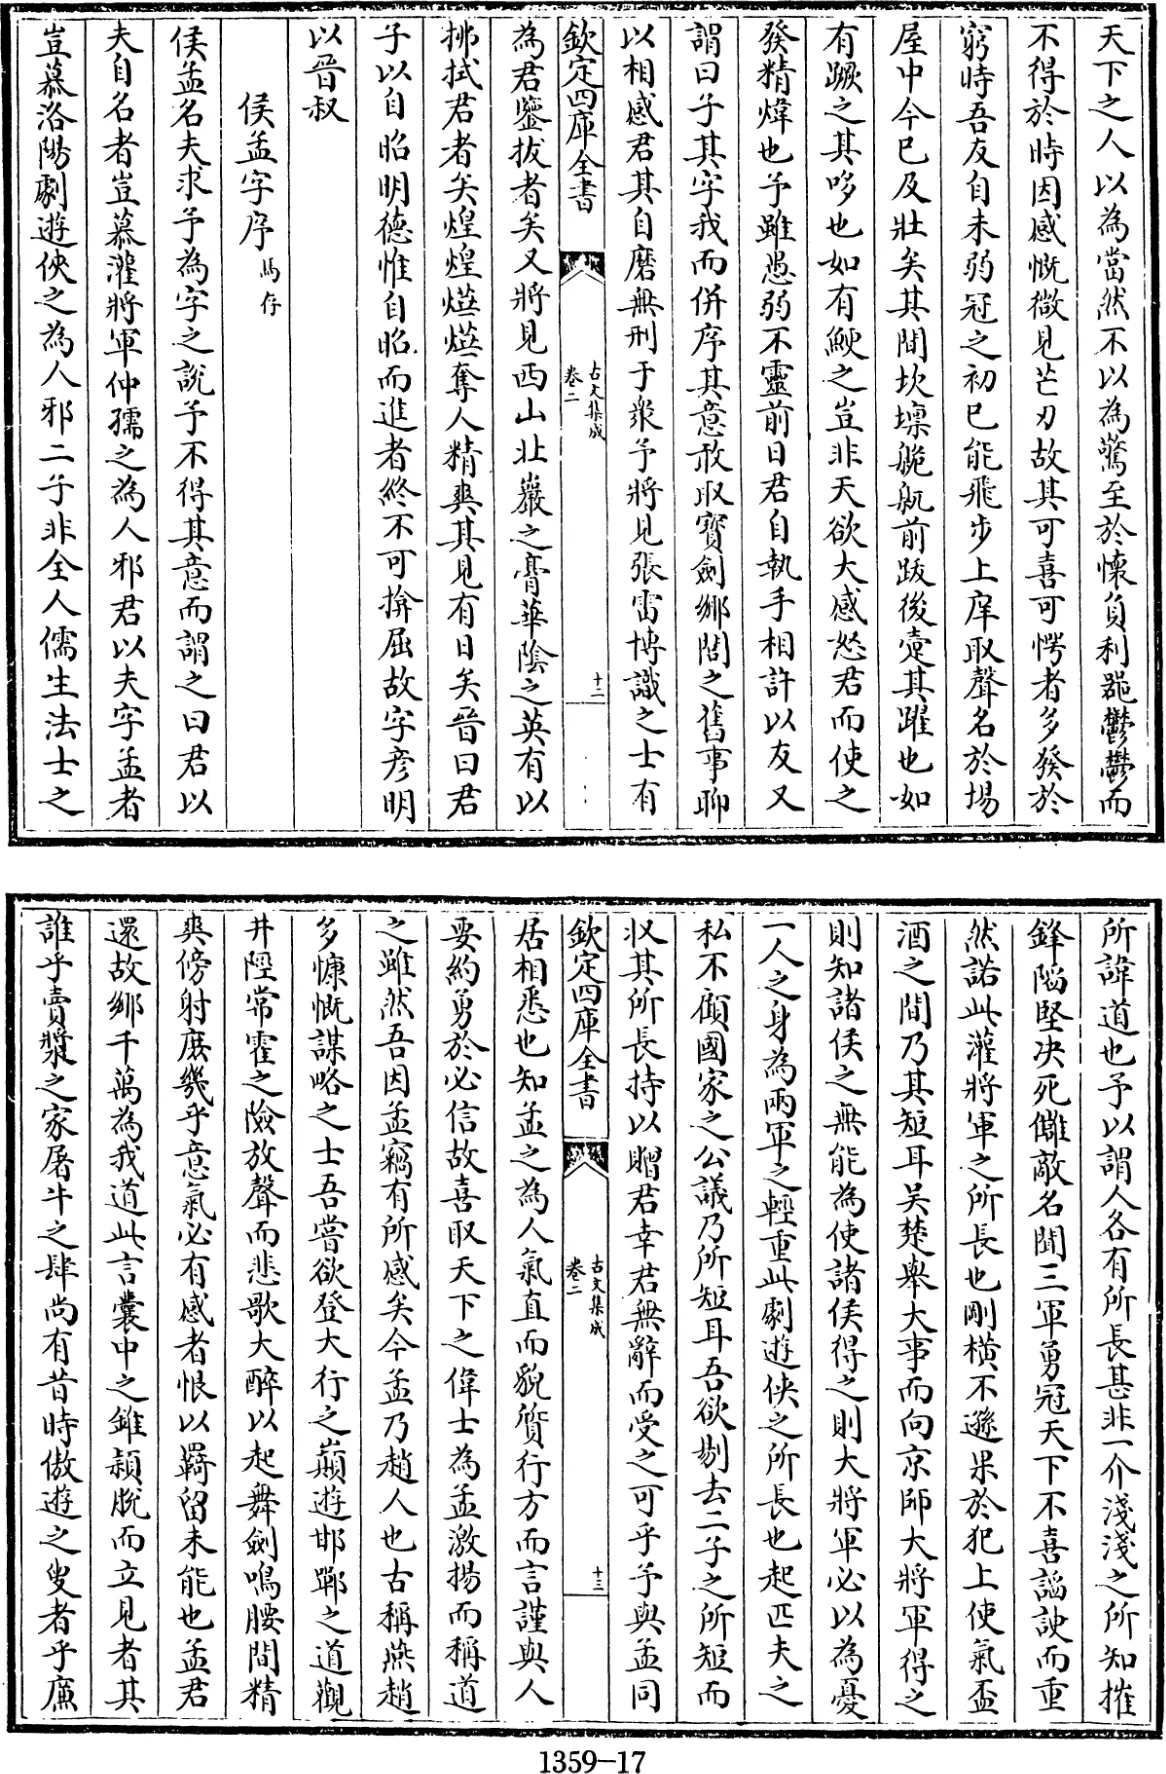 天下之人以為當然不以為驚至於懷負利器鬱鬱而
不得於時因感慨微見芒刃故其可喜可愕者多發於
窮時吾友自未弱冠之初已能飛步上庠取聲名於場
屋中今已及壯矣其間坎壈艴䑴前跋後疐其躍也如
有蹶之其哆也如有鯁之豈非天欲大感怒君而使之
發精煒也予雖愚弱不靈前日君自執手相許以友又
謂曰子其字我而併序其意敢取寳劍鄉閭之舊事聊
以相感君其自磨無刑于衆予將見張雷博識之士有
欽定四庫全書
古文集成
卷二
十二
為君鑒拔者矣又將見西山北巖之膏華陰之英有以
拂拭君者矣煌煌熒熒奪人精爽其見有日矣晉曰君
子以自昭明德惟自昭而進者終不可揜屈故字彦明
以晉叔
侯孟字序馬存
侯孟名夫求予為字之說予不得其意而謂之曰君以
夫自名者豈慕灌將軍仲孺之為人邪君以夫字孟者
豈慕洛陽劇遊俠之為人邪二子非全人儒生法士之
所諱道也予以謂人各有所長甚非一介淺淺之所知摧
鋒陷堅决死讎敵名聞三軍勇冠天下不喜諂諛而重
然諾此灌將軍之所長也剛横不遜果於犯上使氣盃
酒之間乃其短耳吴楚舉大事而向京師大將軍得之
則知諸侯之無能為使諸侯得之則大將軍必以為憂
一人之身為兩軍之輕重此劇遊俠之所長也起匹夫之
私不顧國家之公議乃所短耳吾欲剔去二子之所短而
收其所長持以贈君幸君無辭而受之可乎予與孟同
欽定四庫全書
古文集成
卷二
十三
居相悉也知孟之為人氣直而貌質行方而言謹與人
要約勇於必信故喜取天下之偉士為孟激揚而稱道
之雖然吾因孟竊有所感矣今孟乃趙人也古稱燕趙
多慷慨謀略之士吾嘗欲登大行之巔遊邯鄲之道觀
井陘常霍之險放聲而悲歌大醉以起舞劍鳴腰間精
爽傍射庶幾乎意氣必有感者恨以羇留未能也孟君
還故鄉千萬為我道此言囊中之錐穎脫而立見者其
誰乎賣漿之家屠牛之肆尚有昔時傲遊之叟者乎廉
1359-17